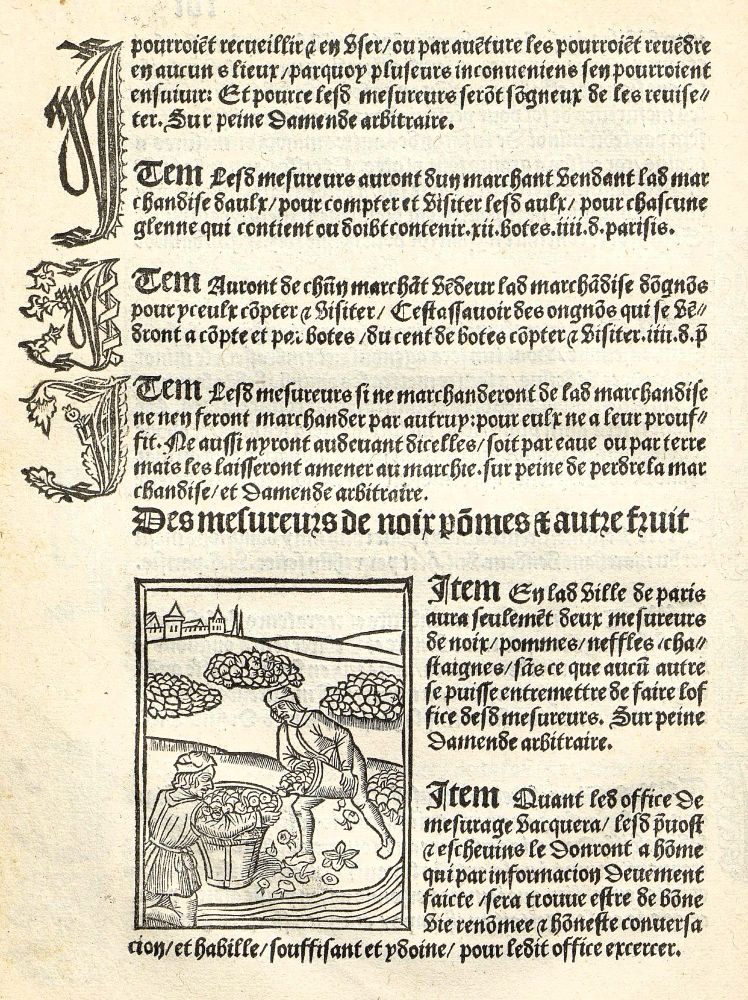 pourroiẽt recueillir ⁊ en vser/ou par auẽture les pourroiẽt reuẽdre
en aucun s lieux/parquoy pluseurs inconueniens sen pourroient
ensuiuir: Et pource lesd mesureurs serõt sõgneux de les reuise⸗
ter. Sur peine Damende arbitraire.
ITem Lesd mesureurs auront dun marchant vendant lad mar
chandise daulx/pour compter et visiter lesd aulx/ pour chascune
glenne qui contient ou doibt contenir.xii.botes.iiii.d.parisis.
ITem Auront de chũn marchãt vẽdeur lad marchãdise dõgnõs
pour yceulx cõpter ⁊ visiter/ Cestassauoir des ongnõs qui se vẽ⸗
dront a cõpte et por botes/du cent de botes cõpter ⁊ visiter.iiii.d.p̃
ITem Lesd mesureurs si ne marchanderont de lad marchandise
ne nen feront marchander par autruy:pour eulx ne a leur prouf⸗
fit. Ne aussi nyront audeuant dicelles/soit par eaue ou par terre
mais les laisseront amener au marchie.sur peine de perdre la mar
chandise/et Damende arbitraire.
Des mesureurs de noix põmes ⁊ autre fruit
Item En lad ville de paris
aura seulemẽt deux mesureurs
de noix/pommes/neffles/cha⸗
staignes/sãs ce que aucũ autre
se puisse entremettre de faire lof
fice desd mesureurs. Sur peine
Damende arbitraire.
Item Quant led office de
mesurage vacquera/ lesd p̃uost
⁊ escheuins le Donront a hõme
qui par informacion Deuement
faicte/sera trouue estre de bõne
vie renõmee ⁊ hõneste conuersa
cion/et habille/souffisant et ydoine/ pour ledit office excercer.